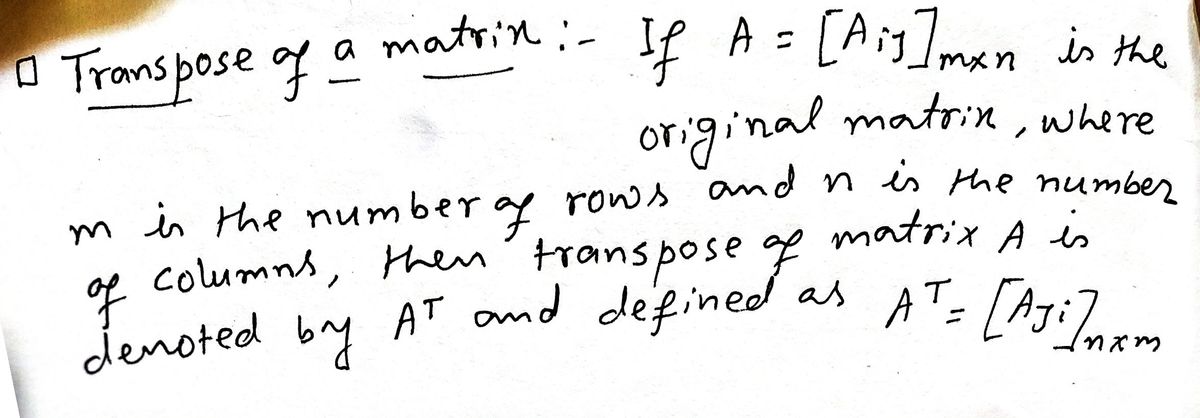 □ Transpose of a matrix :- If A = [Aij]m×n is the
original matrix, where
m is the number of rows and n is the number
of columns, then transpose of matrix A is
denoted by Aᵀ and defined as Aᵀ = [Aji]n×m